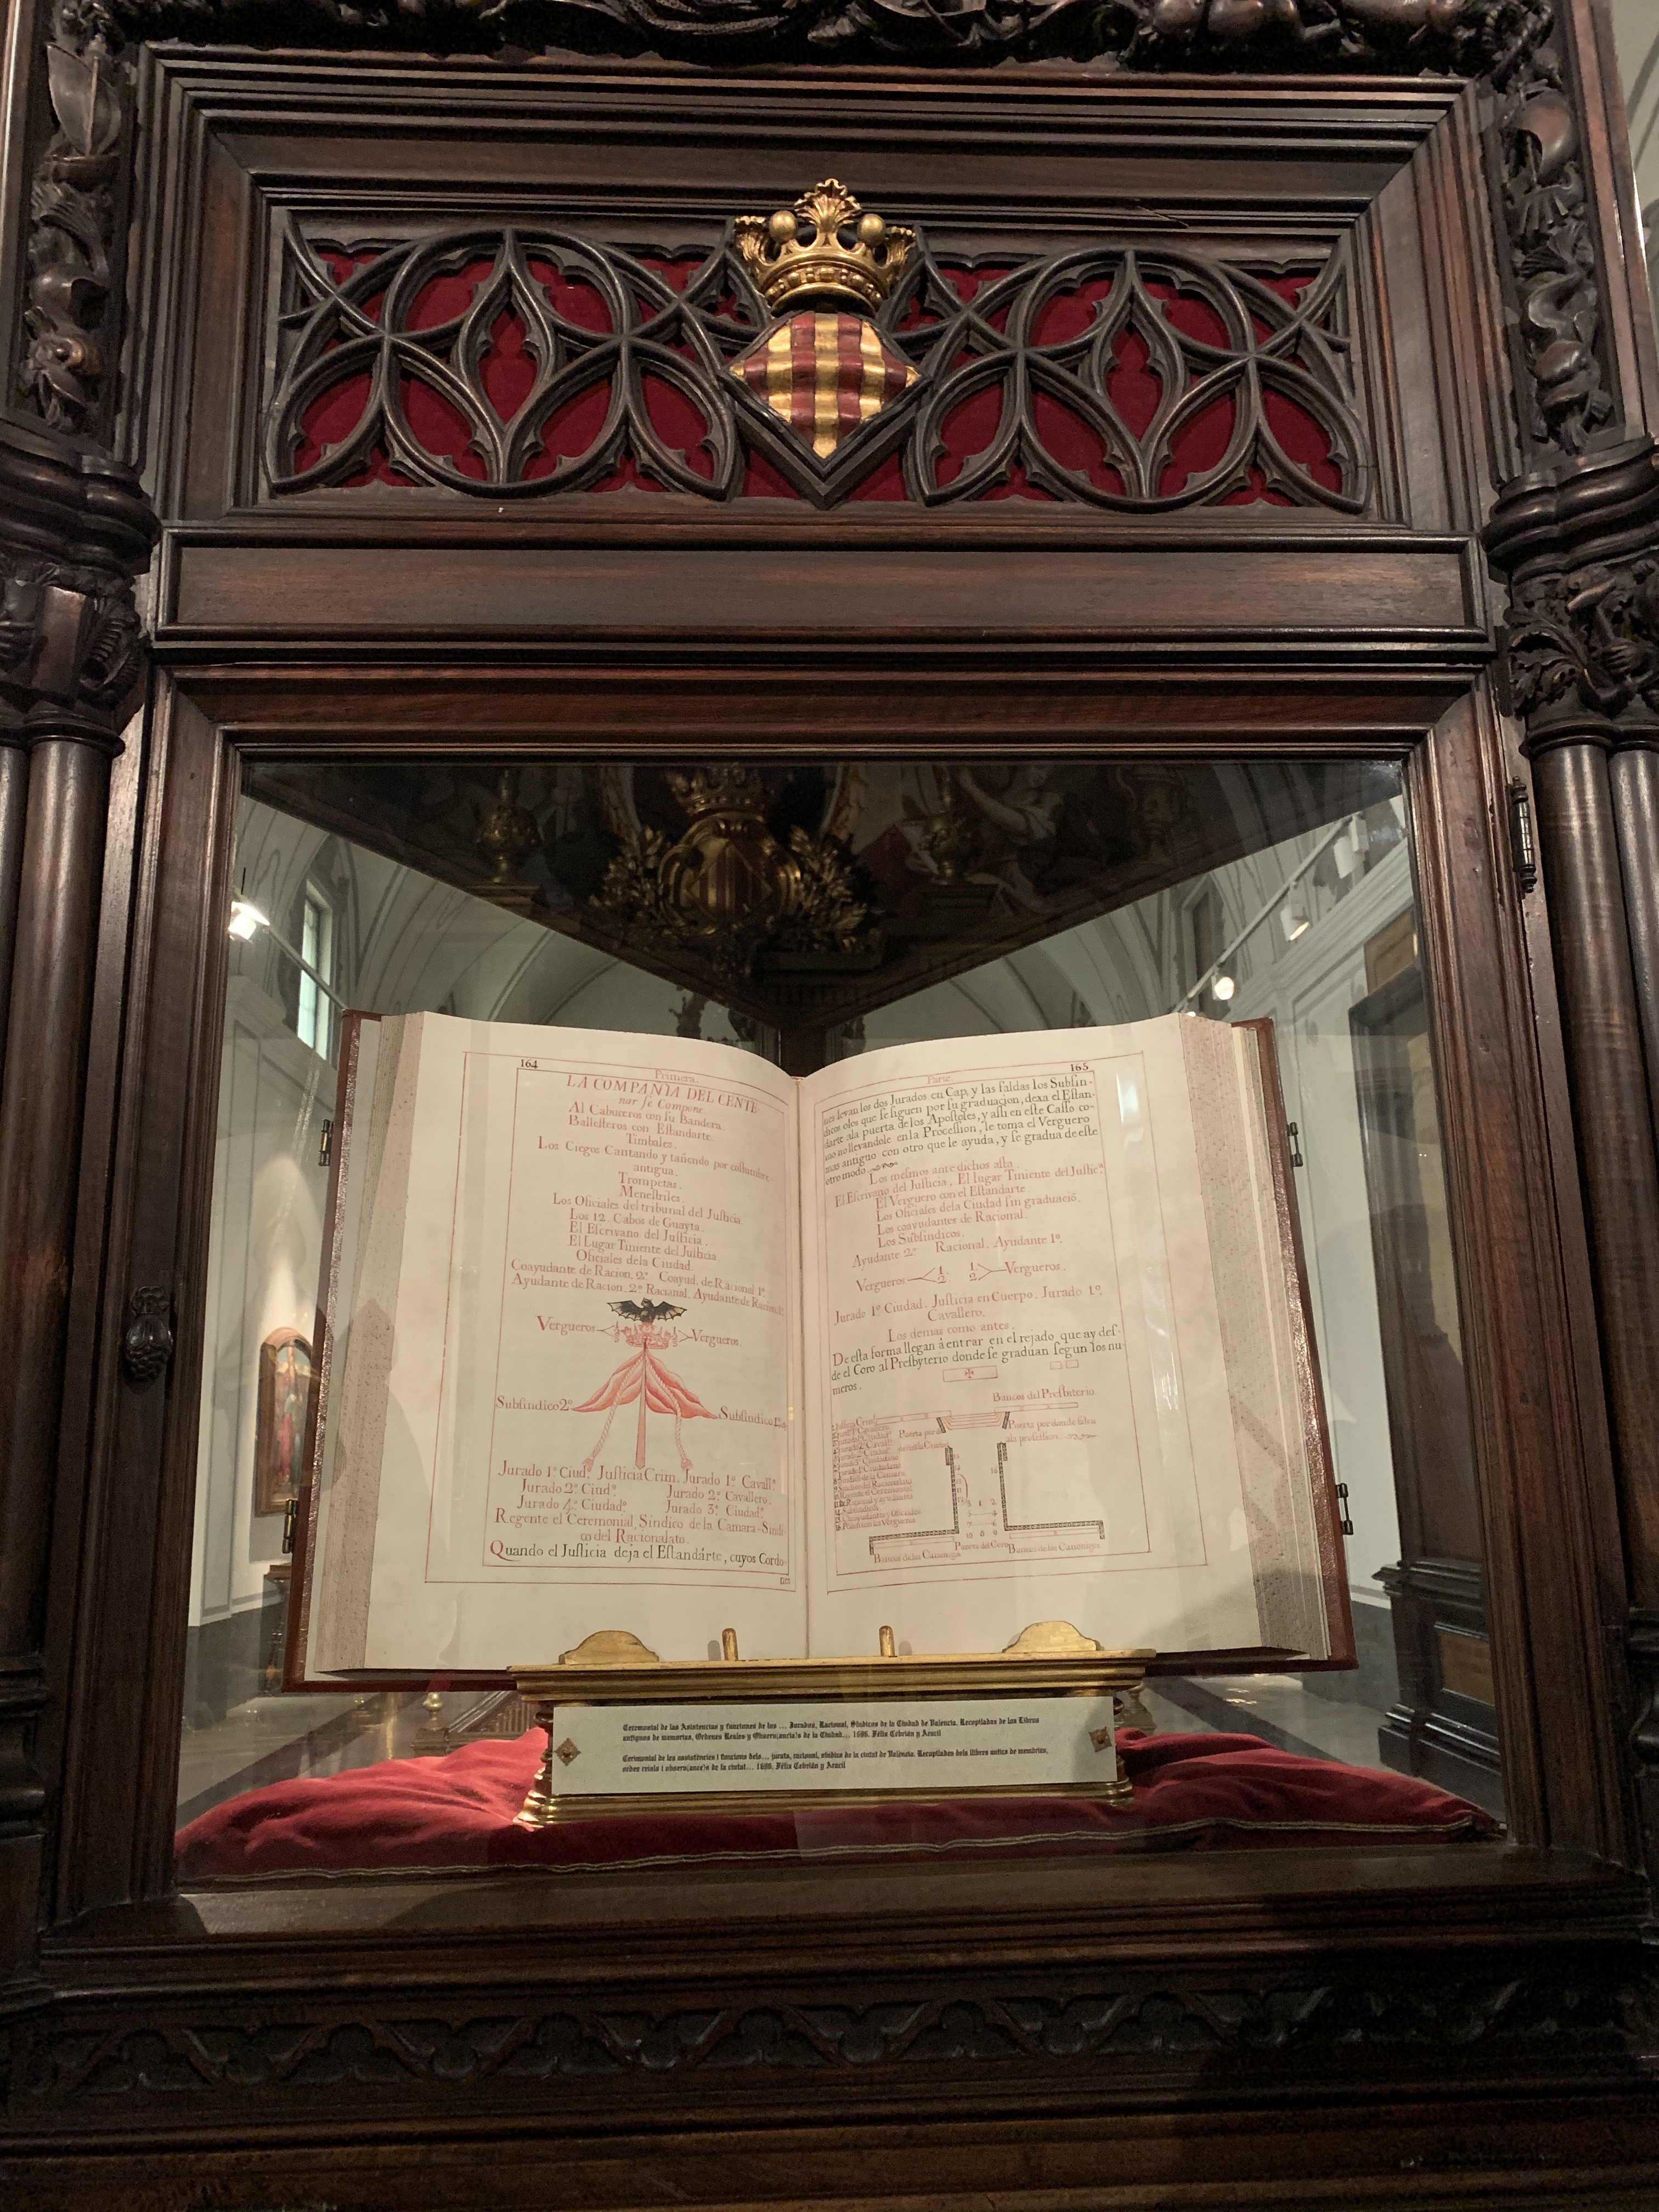 164
Primera.
LA COMPANÍA DEL CENTE
nar se Compone
Al Cabuceros con su Bandera.
Ballesteros con Estandarte.
Timbales.
Los Ciegos Cantando y tañendo por costumbre
antigua.
Trompetas.
Menestriles.
Los Oficiales del tribunal del Justicia
Los 12. Cabos de Guayta.
El Escrivano del Justicia.
El Lugar Tiniente del Justicia
Oficiales dela Ciudad.
Coayudante de Racion. 2º. Coayud. de Racional 1º.
Ayudante de Racion. 2º Racional. Ayudante de Racion. 1º.
Vergueros Vergueros
Subsindico 2º Subsindico
Jurado 1º. Ciudº. Justicia Crim. Jurado 1º. Cavallº.
Jurado 2º. Ciudº. Jurado 2º. Cavallero.
Jurado 4º. Ciudadº. Jurado 3º. Ciudadº.
Regente el Ceremonial, Sindico de la Camara-Sindi
co del Racionalato.
Quando el Justicia deja el Estandàrte, cuyos Cordo-
165
Parte
nes levan los dos Jurados en Cap, y las faldas los Subsin-
dicos olos que se siguen por su graduacion, dexa el Estan-
darte ala puerta de los Apostoles, y assi en este Casso co-
mo no llevandole en la Procession, le toma el Verguero
mas antiguo con otro que le ayuda, y se gradua de este
otro modo.
Los mesmos ante dichos asta
El Escrivano del Justicia. El lugar Tiniente del Justicª.
El Verguero con el Estandarte
Los Oficiales dela Ciudad sin graduació.
Los coayudantes de Racional.
Los Subsindicos.
Ayudante 2º Racional. Ayudante 1º.
Vergueros 1. 2. 1. 2. Vergueros.
Jurado 1º Ciudad. Justicia en Cuerpo. Jurado 1º.
Cavallero.
Los demas como antes.
De esta forma llegan á entrar en el rejado que ay des-
de el Coro al Presbyterio donde se graduan segun los nu-
meros.
Bancos del Presbiterio.
Puerta por Puerta por donde salen
ala procession
Bancos de los Canonigos Puerta del Coro Bancos de los Canonigos
Ceremonial de las Asistencias y funciones de los ... Jurados, Racional, Síndicos de la Ciudad de Valencia. Recopiladas de los Libros
antiguos de memorias, Ordenes Reales y Observ(ancia)s de la Ciudad... 1696. Félix Cebrián y Aracil
Cerimonial de les assistències i funcions dels... jurats, racional, síndics de la ciutat de València. Recopilades dels llibres antics de memòries,
ordes reials i observ(ance)s de la ciutat... 1696, Félix Cebrián y Aracil